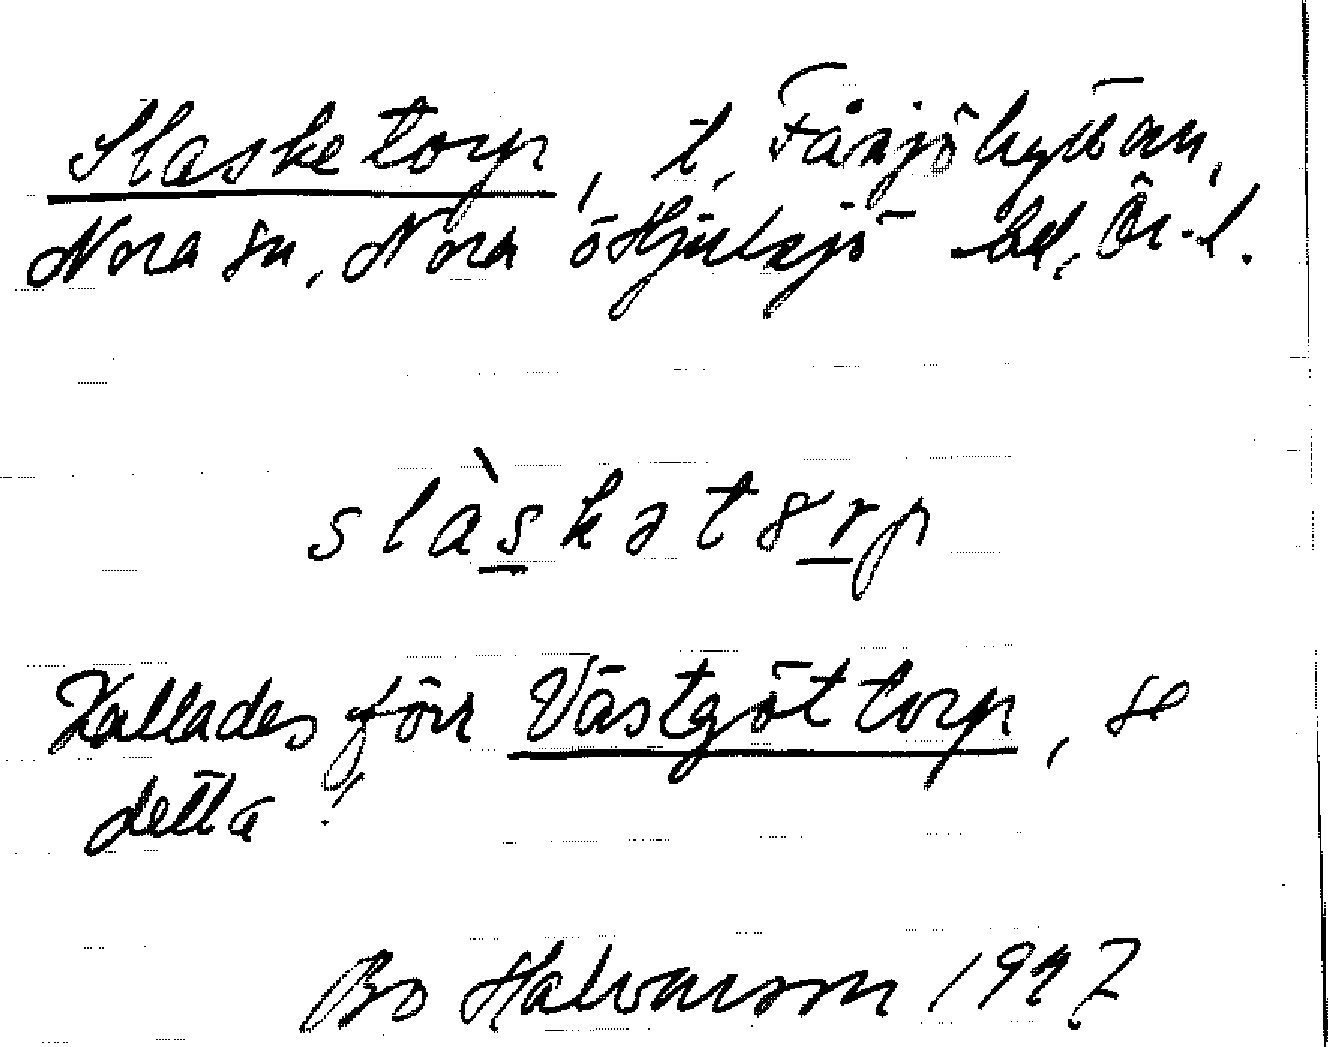 Slasketorp, t. Fåsjöhyttan,
Nora sn, Nora o Hjulsjö bd, Ör. l.
slàskətərp
Kallades förr Västgöttorp, se
detta!
Bo Halvarson 1997